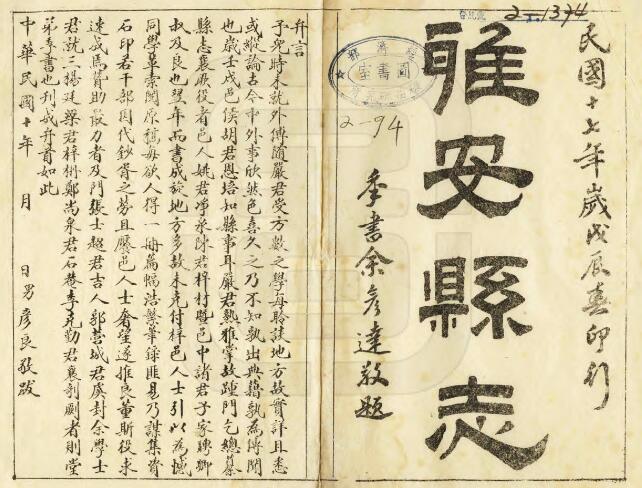 2-1394
民國十七年歲戊辰春印行
雅安縣志
圖書室
2-94
季書余彥達敬題
弁言
予兒時未就外傅隨嚴君受方數之學每聆談地方故實詳且悉
或縱論古今中外事欣然色喜久之乃不知孰出典籍孰為傳聞
也歲壬戌邑侯胡君恩培知縣事耳嚴君熟雅掌故踵門乞總纂
縣志襄厥役者邑人姚君淨泉陳君梓材暨邑中諸君子家聘卿
叔及良也翌年而書成旋地方多故未克付梓邑人士引以為憾
同學輩索閱原稿每欲人得一冊篇幅浩繁筆錄匪易乃謀集資
石印若干部因代鈔胥之勞且饜邑人士奢望遂推良董斯役求
速成焉贊助最力者及門張士超君吉人郭蓉城君虞封余學士
君就三楊廷樑君梓卅鄭尚泉君石菴李克勤君襄剞劂者則堂
弟季書也刊成弁首如此
中華民國十年 月 日男彥良敬跋